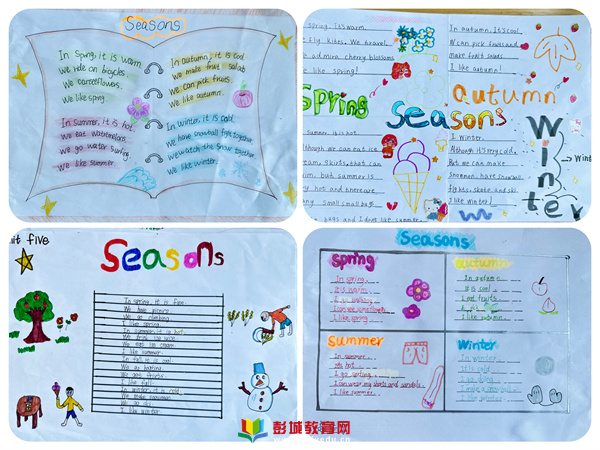 Seasons
In Spring, it is warm
We ride on bicycles.
We
We like spring
In summer, it is hot.
We eat watermelons.
We go water surfing.
We like summer.
In autumn, it is cool
We make fruit salad
We can pick fruits.
We like autumn.
In winter, it is cold.
We have snowball fight together.
We watch the snow together.
We like winter.
spring. It's warm.
fly kites. We travel.
admire cherry blossoms
like spring!
Spring
Seasons
In autumn. It's cool.
We can pick fruits and
make fruit salad.
I like autumn!
autumn
summer. It is hot.
Although we can eat ice
cream, skirts, that can
but summer is
hot and there are
small small bugs
bugs and I don't like summer.
I Winter.
Although it's very cold.
But we can make
snowmen, have snowball
fights, skate and ski.
I like winter!
Winter
it five
Seasons
In spring, it is fine.
We have picnics.
We go climbing.
I like spring.
In summer, it is hot.
We drink ice
We eat ice cream.
I like summer.
In fall, it is cool.
We go
We get fruits.
I like fall.
In winter, it is cold.
We make snowman.
We go ski.
I like winter.
Seasons
Spring
In spring.
It is warm.
I go
I can see
I like spring
autumn
In autumn.
It is cool.
I eat fruits.
I like autumn.
Summer
In summer.
It's hot.
I go
I can wear my shorts and sandals.
I like summer.
Winter
In winter.
It is cold.
I go
I make a snowman.
I like winter.
彭城教育网